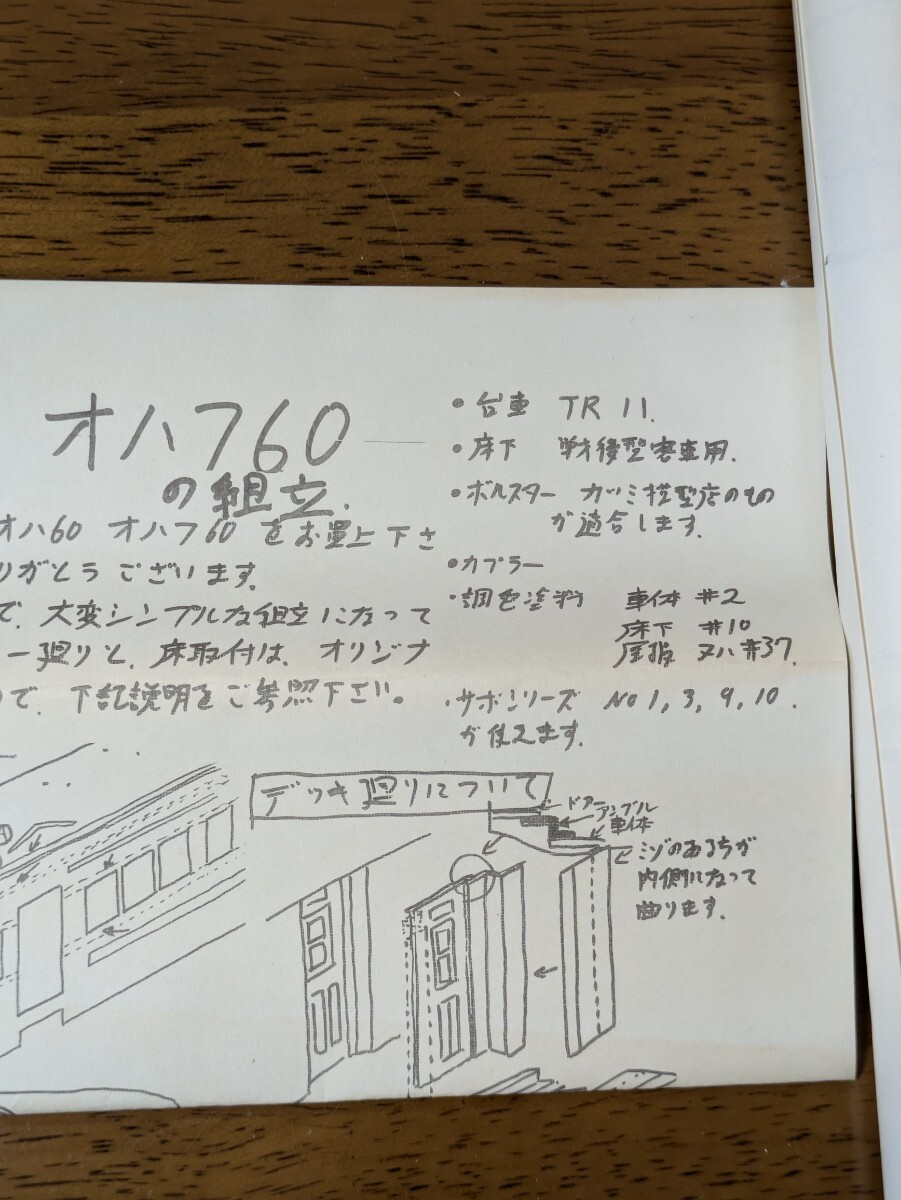 オハフ60
の組立.
オハ60 オハフ60 をお買上下さ
りがとうございます.
で、大変シンプルな組立になって
ー廻りと、床取付は、オリジナ
で、下記説明をご参照下さい。
・台車 TR 11.
・床下 戦後型客車用.
・ボルスター カツミ模型店のもの
が適合します.
・カプラー
・調色塗料 車体 #2
床下 #10
屋根 又ハ #37.
・サボシリーズ No 1, 3, 9, 10.
が使えます.
デッキ廻りについて
ドア
アングル
車体
ミゾのある方が
内側になって
曲ります.